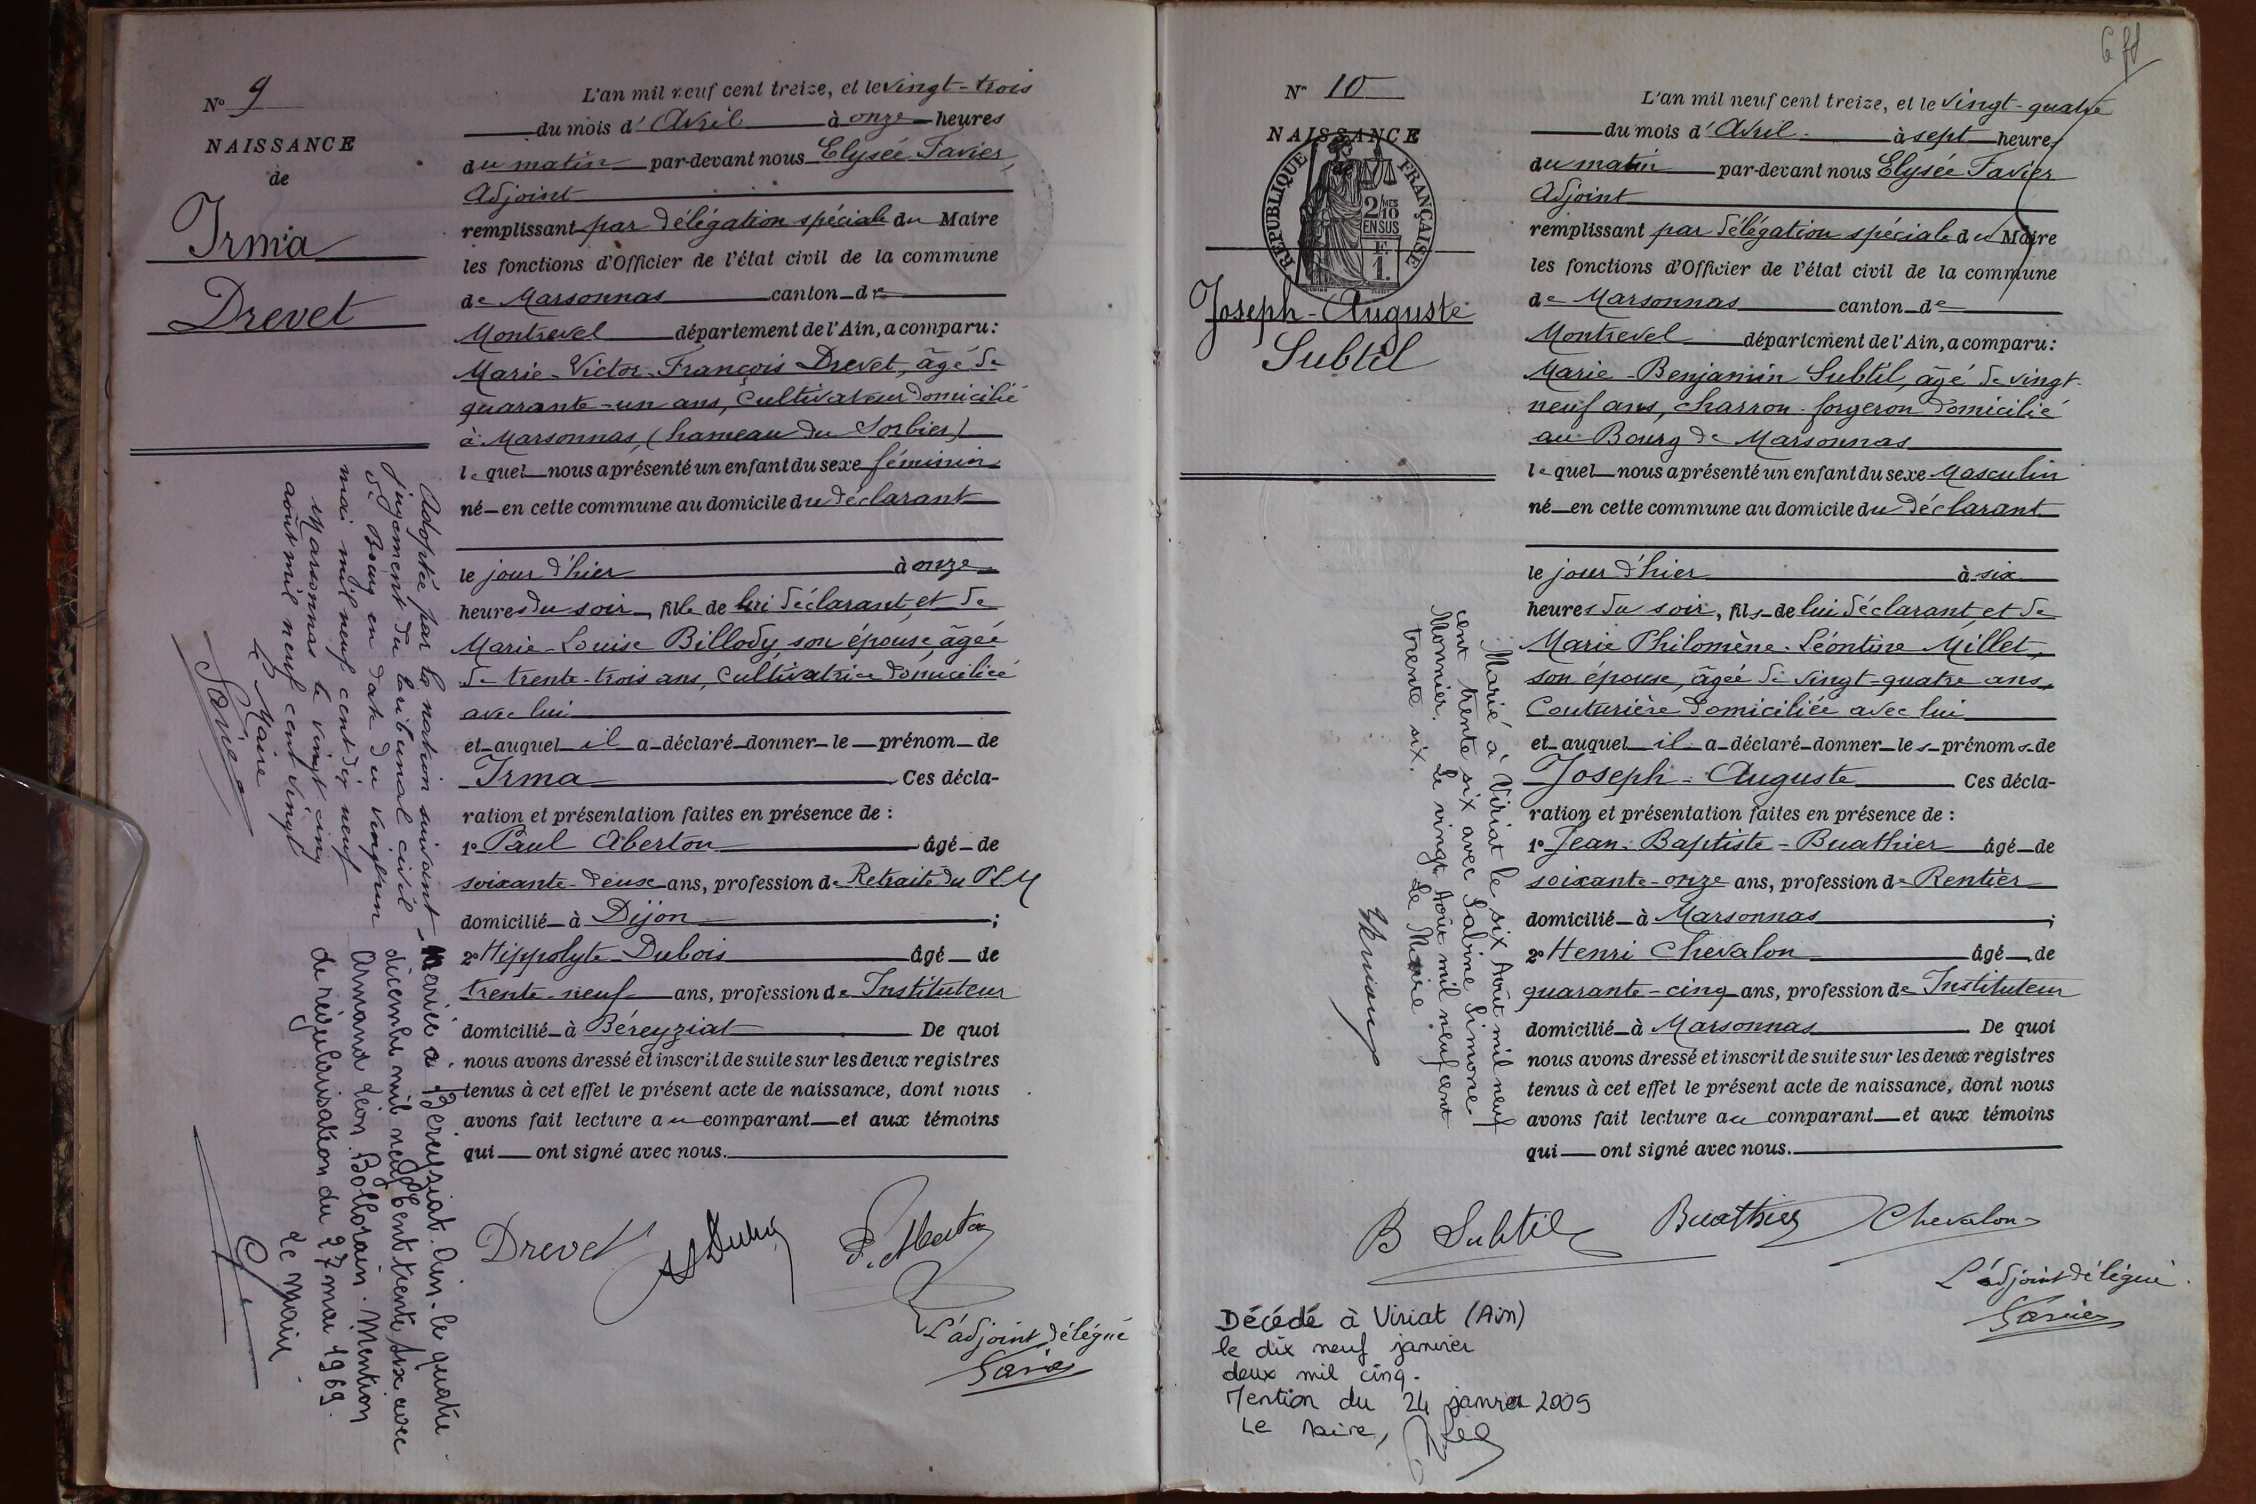 N° 9
NAISSANCE
de
Irma
Drevet
L'an mil neuf cent treize, et le vingt-trois
du mois d'Avril à onze heures
du matin par-devant nous Elysée Favier,
Adjoint
remplissant par délégation spéciale du Maire
les fonctions d'Officier de l'état civil de la commune
de Marsonnas canton de
Montrevel département de l'Ain, a comparu :
Marie-Victor-François Drevet, âgé de
quarante-un ans, Cultivateur domicilié
à Marsonnas, (hameau du Sorbier)
lequel nous a présenté un enfant du sexe féminin
né en cette commune au domicile du déclarant
le jour d'hier à onze
heures du soir, fille de lui déclarant et de
Marie-Louise Billody, son épouse, âgée
de trente-trois ans, Cultivatrice domiciliée
avec lui
et auquel il a déclaré donner le prénom de
Irma Ces décla-
ration et présentation faites en présence de :
1° Paul Aberton âgé de
soixante-deux ans, profession de Retraité du PLM
domicilié à Dijon ;
2° Hippolyte Dubois âgé de
trente-neuf ans, profession de Instituteur
domicilié à Béreyziat De quoi
nous avons dressé et inscrit de suite sur les deux registres
tenus à cet effet le présent acte de naissance, dont nous
avons fait lecture au comparant et aux témoins
qui ont signé avec nous.
Drevet
L'adjoint délégué
Favier
Adoptée par la nation suivant
jugement du tribunal civil
de Bourg en date du vingt un
mai mil neuf cent dix neuf
Marsonnas le vingt cinq
août mil neuf cent vingt
Le Maire
Favier
Mariée a Bereyziat. Ain. le quatre
décembre mil neuf cent trente six avec
Armand Léon Mention
de régularisation du 27 mai 1969.
Le Maire
6 ff
N° 10
NAISSANCE
RÉPUBLIQUE FRANÇAISE
2/10
EN SUS
F.
1.
Joseph-Auguste
Subtil
L'an mil neuf cent treize, et le vingt-quatre
du mois d'Avril à sept heures
du matin par-devant nous Elysée Favier
Adjoint
remplissant par délégation spéciale du Maire
les fonctions d'Officier de l'état civil de la commune
de Marsonnas canton de
Montrevel département de l'Ain, a comparu :
Marie-Benjamin Subtil, âgé de vingt-
neuf ans, charron-forgeron domicilié
au Bourg de Marsonnas
lequel nous a présenté un enfant du sexe Masculin
né en cette commune au domicile du déclarant
le jour d'hier à six
heures du soir, fils de lui déclarant et de
Marie Philomène-Léontine Millet,
son épouse, âgée de vingt-quatre ans,
Couturière domiciliée avec lui
et auquel il a déclaré donner les prénoms de
Joseph-Auguste Ces décla-
ration et présentation faites en présence de :
1° Jean-Baptiste-Buathier âgé de
soixante-onze ans, profession de Rentier
domicilié à Marsonnas ;
2° Henri Chevalon âgé de
quarante-cinq ans, profession de Instituteur
domicilié à Marsonnas De quoi
nous avons dressé et inscrit de suite sur les deux registres
tenus à cet effet le présent acte de naissance, dont nous
avons fait lecture au comparant et aux témoins
qui ont signé avec nous.
B Subtil Buathier Chevalon
L'adjoint délégué
Favier
Marié à Viriat le six Août mil neuf
cent trente six avec Sabine Simone
Monnier. Le vingt Août mil neuf cent
trente six. Le Maire
Décédé à Viriat (Ain)
le dix neuf janvier
deux mil cinq.
Mention du 24 janvier 2005
Le Maire,